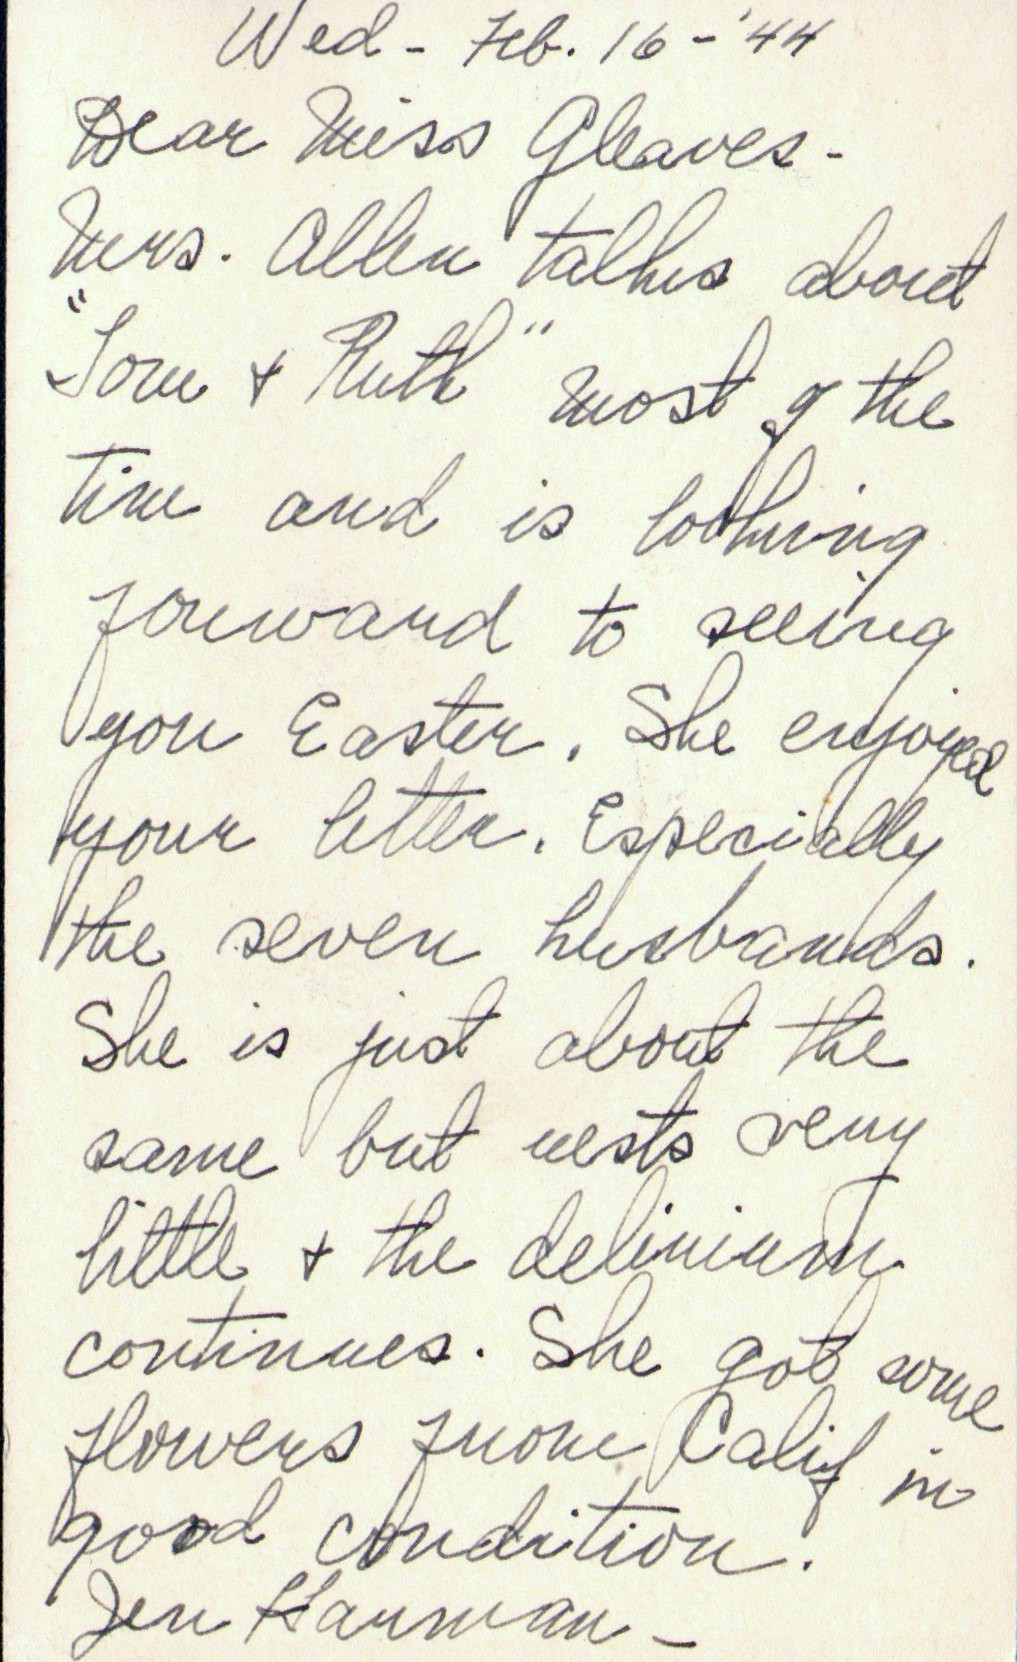 Wed - Feb. 16 - '44
Dear Miss Gleaves -
Mrs. Allen talks about
"Tom + Ruth" most of the
time and is looking
forward to seeing
you Easter. She enjoyed
your letter. Especially
the seven husbands.
She is just about the
same but rests very
little + the delirium
continues. She got some
flowers from Calif in
good condition.
Jen Harman -